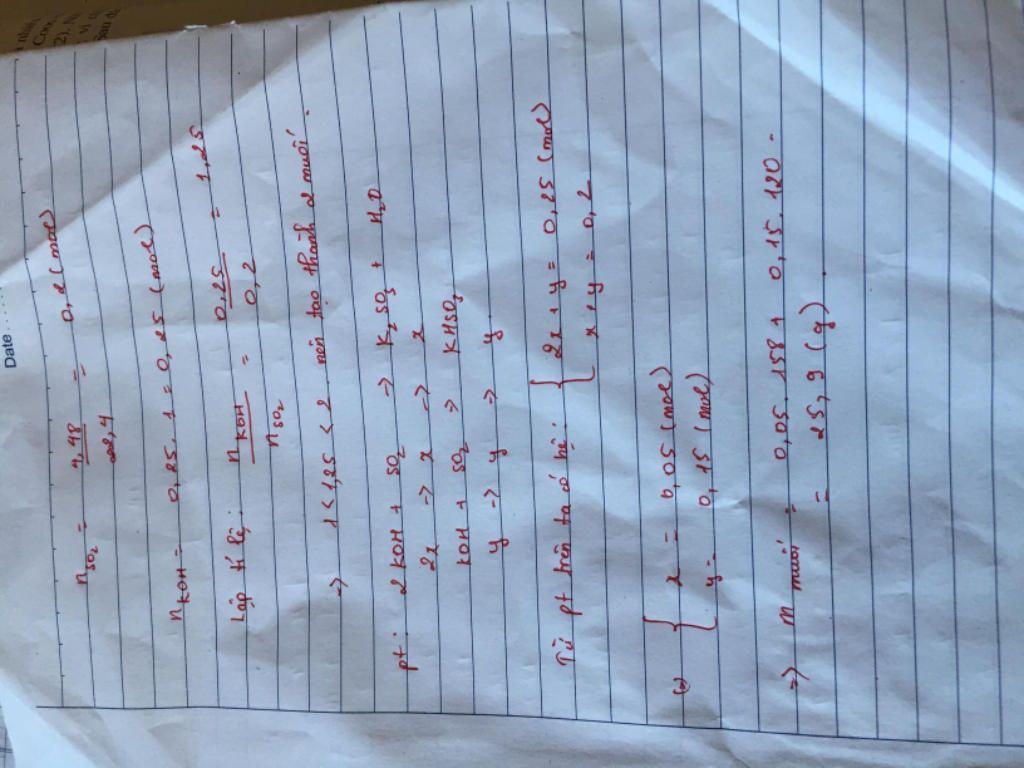 Date ....
n SO2 = 4,48 / 22,4 = 0,2 (mol)
n KOH = 0,25 . 1 = 0,25 (mol)
Lập tỉ lệ : n KOH / n SO2 = 0,25 / 0,2 = 1,25
=> 1 < 1,25 < 2 nên tạo thành 2 muối .
pt : 2 KOH + SO2 -> K2SO3 + H2O
2x -> x -> x
KOH + SO2 -> KHSO3
y -> y -> y
Từ pt trên ta có hệ : { 2x + y = 0,25 (mol)
x + y = 0,2
{ x = 0,05 (mol)
y = 0,15 (mol)
=> m muối = 0,05 . 158 + 0,15 . 120 .
= 25,9 (g) .